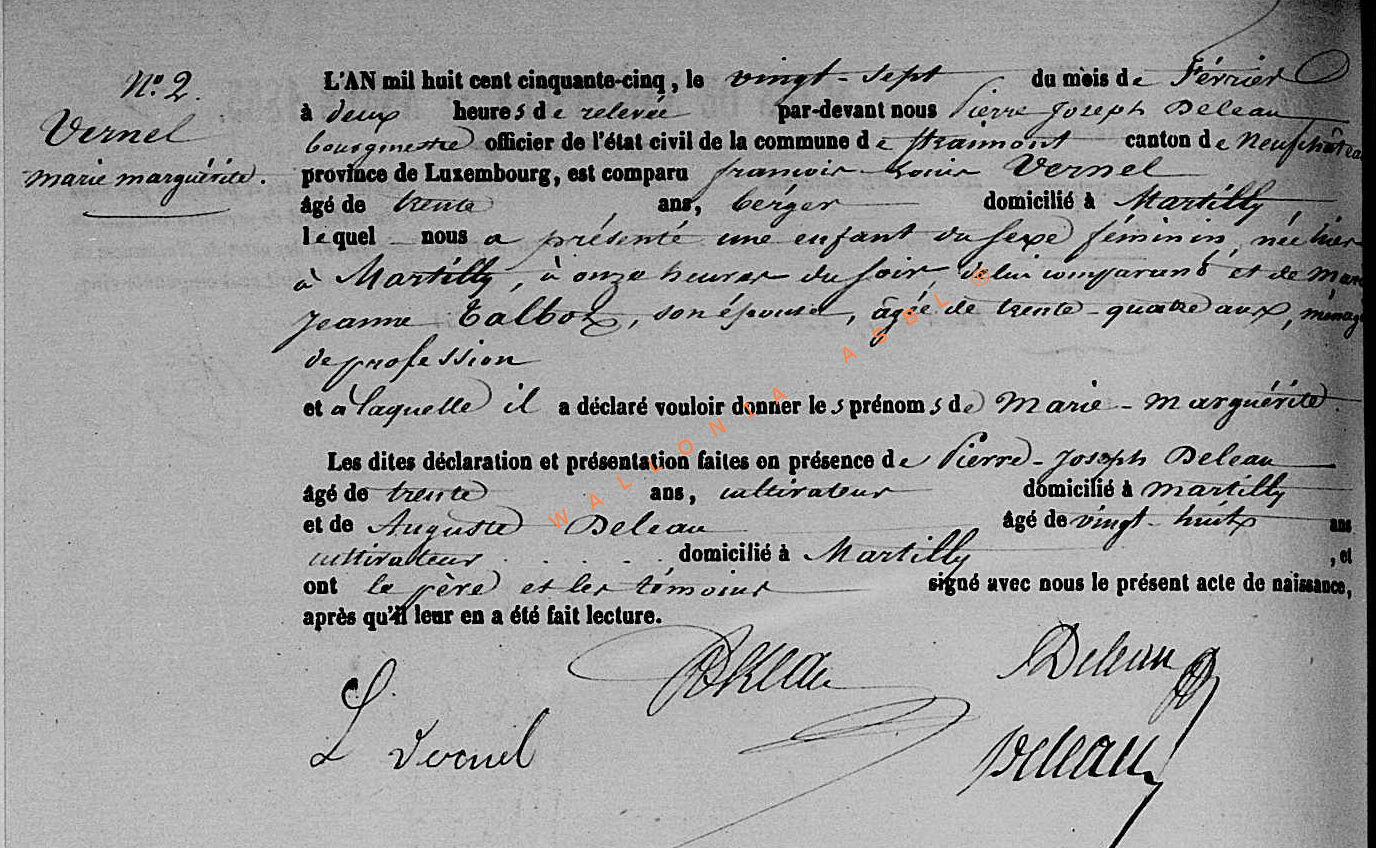 N° 2.
Vernel
marie marguérite.
L'AN mil huit cent cinquante-cinq, le vingt-sept du mois de Février
à deux heures de relevée par-devant nous Pierre Joseph Deleau
bourgmestre officier de l'état civil de la commune de Straimont canton de Neufchâteau
province de Luxembourg, est comparu françois-Louis Vernel
âgé de trente ans, berger domicilié à Martilly
lequel nous a présenté une enfant du sexe féminin, née hier
à Martilly, à onze heures du soir, de lui comparant et de Marie
Jeanne Talbot, son épouse, âgée de trente-quatre ans, ménag
de profession
et à laquelle il a déclaré vouloir donner les prénoms de Marie-Marguérite.
Les dites déclaration et présentation faites en présence de Pierre-Joseph Deleau
âgé de trente ans, cultivateur domicilié à Martilly
et de Auguste Deleau âgé de vingt-huit ans
cultivateur domicilié à Martilly, et
ont le père et les témoins signé avec nous le présent acte de naissance,
après qu'il leur en a été fait lecture.
Deleau
Deleau
L Vernel
Deleau
WALLONIA ASBL ®